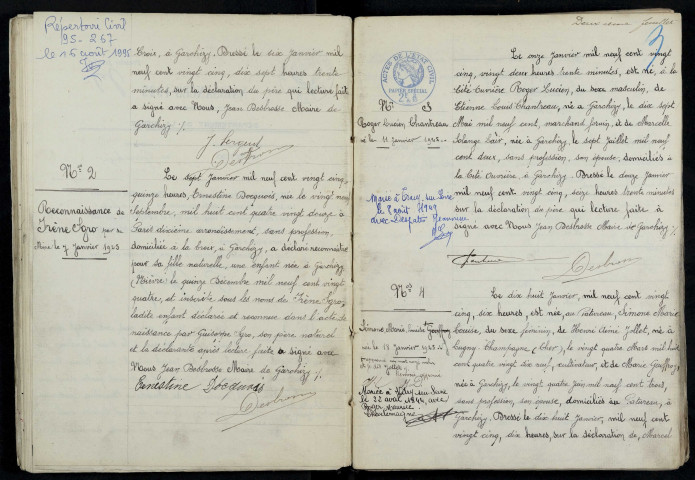 Répertoire Civil
95-267
le 16 août 1995
Croix, à Garchizy. Dressé le six Janvier mil
neuf cent vingt cinq, dix sept heures trente
minutes, sur la déclaration du père qui lecture faite
a signé avec Nous, Jean Desbrosse Maire de
Garchizy ./.
N° 2
Reconnaissance de
Irène
le 7 Janvier 1925
Le sept Janvier mil neuf cent vingt cinq,
quinze heures, Ernestine Bocquenis, née le vingt neuf
Septembre, mil huit cent quatre vingt douze à
Paris dixième arrondissement, sans profession,
domiciliée à la Croix, à Garchizy, a déclaré reconnaître
pour sa fille naturelle, une enfant née à Garchizy
(Nièvre) le quinze Décembre mil neuf cent vingt
quatre, et inscrite sous les noms de Irène
ladite enfant déclarée et reconnue dans l'acte de
naissance par son père naturel
et la déclarante après lecture faite a signé avec
Nous Jean Desbrosse Maire de Garchizy ./.
Ernestine
Desbrosse
Deuxième feuillet
3
ACTES DE L'ÉTAT CIVIL
PAPIER SPÉCIAL
N° 3
Roger Lucien Chantreau
le 11 Janvier 1925
Le onze Janvier mil neuf cent vingt
cinq, vingt deux heures trente minutes, est né, à la
Cité Ouvrière Roger Lucien, du sexe masculin, de
Etienne Louis Chantreau, né à Garchizy, le dix sept
Mai mil neuf cent, marchand forain, et de Marcelle
Solange née à Garchizy, le sept Juillet mil neuf
cent deux, sans profession, son épouse, domiciliés à
la Cité Ouvrière, à Garchizy. Dressé le douze Janvier
mil neuf cent vingt cinq, seize heures trente minutes
sur la déclaration du père qui lecture faite a
signé avec Nous Jean Desbrosse Maire de Garchizy ./.
Marié à
le 8 août 1949
avec
Chantreau
Desbrosse
N° 4
Simone Marie Louise
le 18 Janvier 1925
Mariée à
le 22 avril 1944, avec
Roger Maurice
Charlemagne
Le dix huit Janvier, mil neuf cent vingt
cinq, six heures, est née, au Simone Marie
Louise, du sexe féminin, de Henri
Lugny Champagne (Cher), le vingt quatre Mars mil huit
cent quatre vingt dix neuf, cultivateur, et de Marie
née à Garchizy, le vingt quatre Juin mil neuf cent trois,
sans profession, son épouse, domiciliés au à
Garchizy. Dressé le dix huit Janvier, mil neuf cent
vingt cinq, dix heures, sur la déclaration de, Marcel